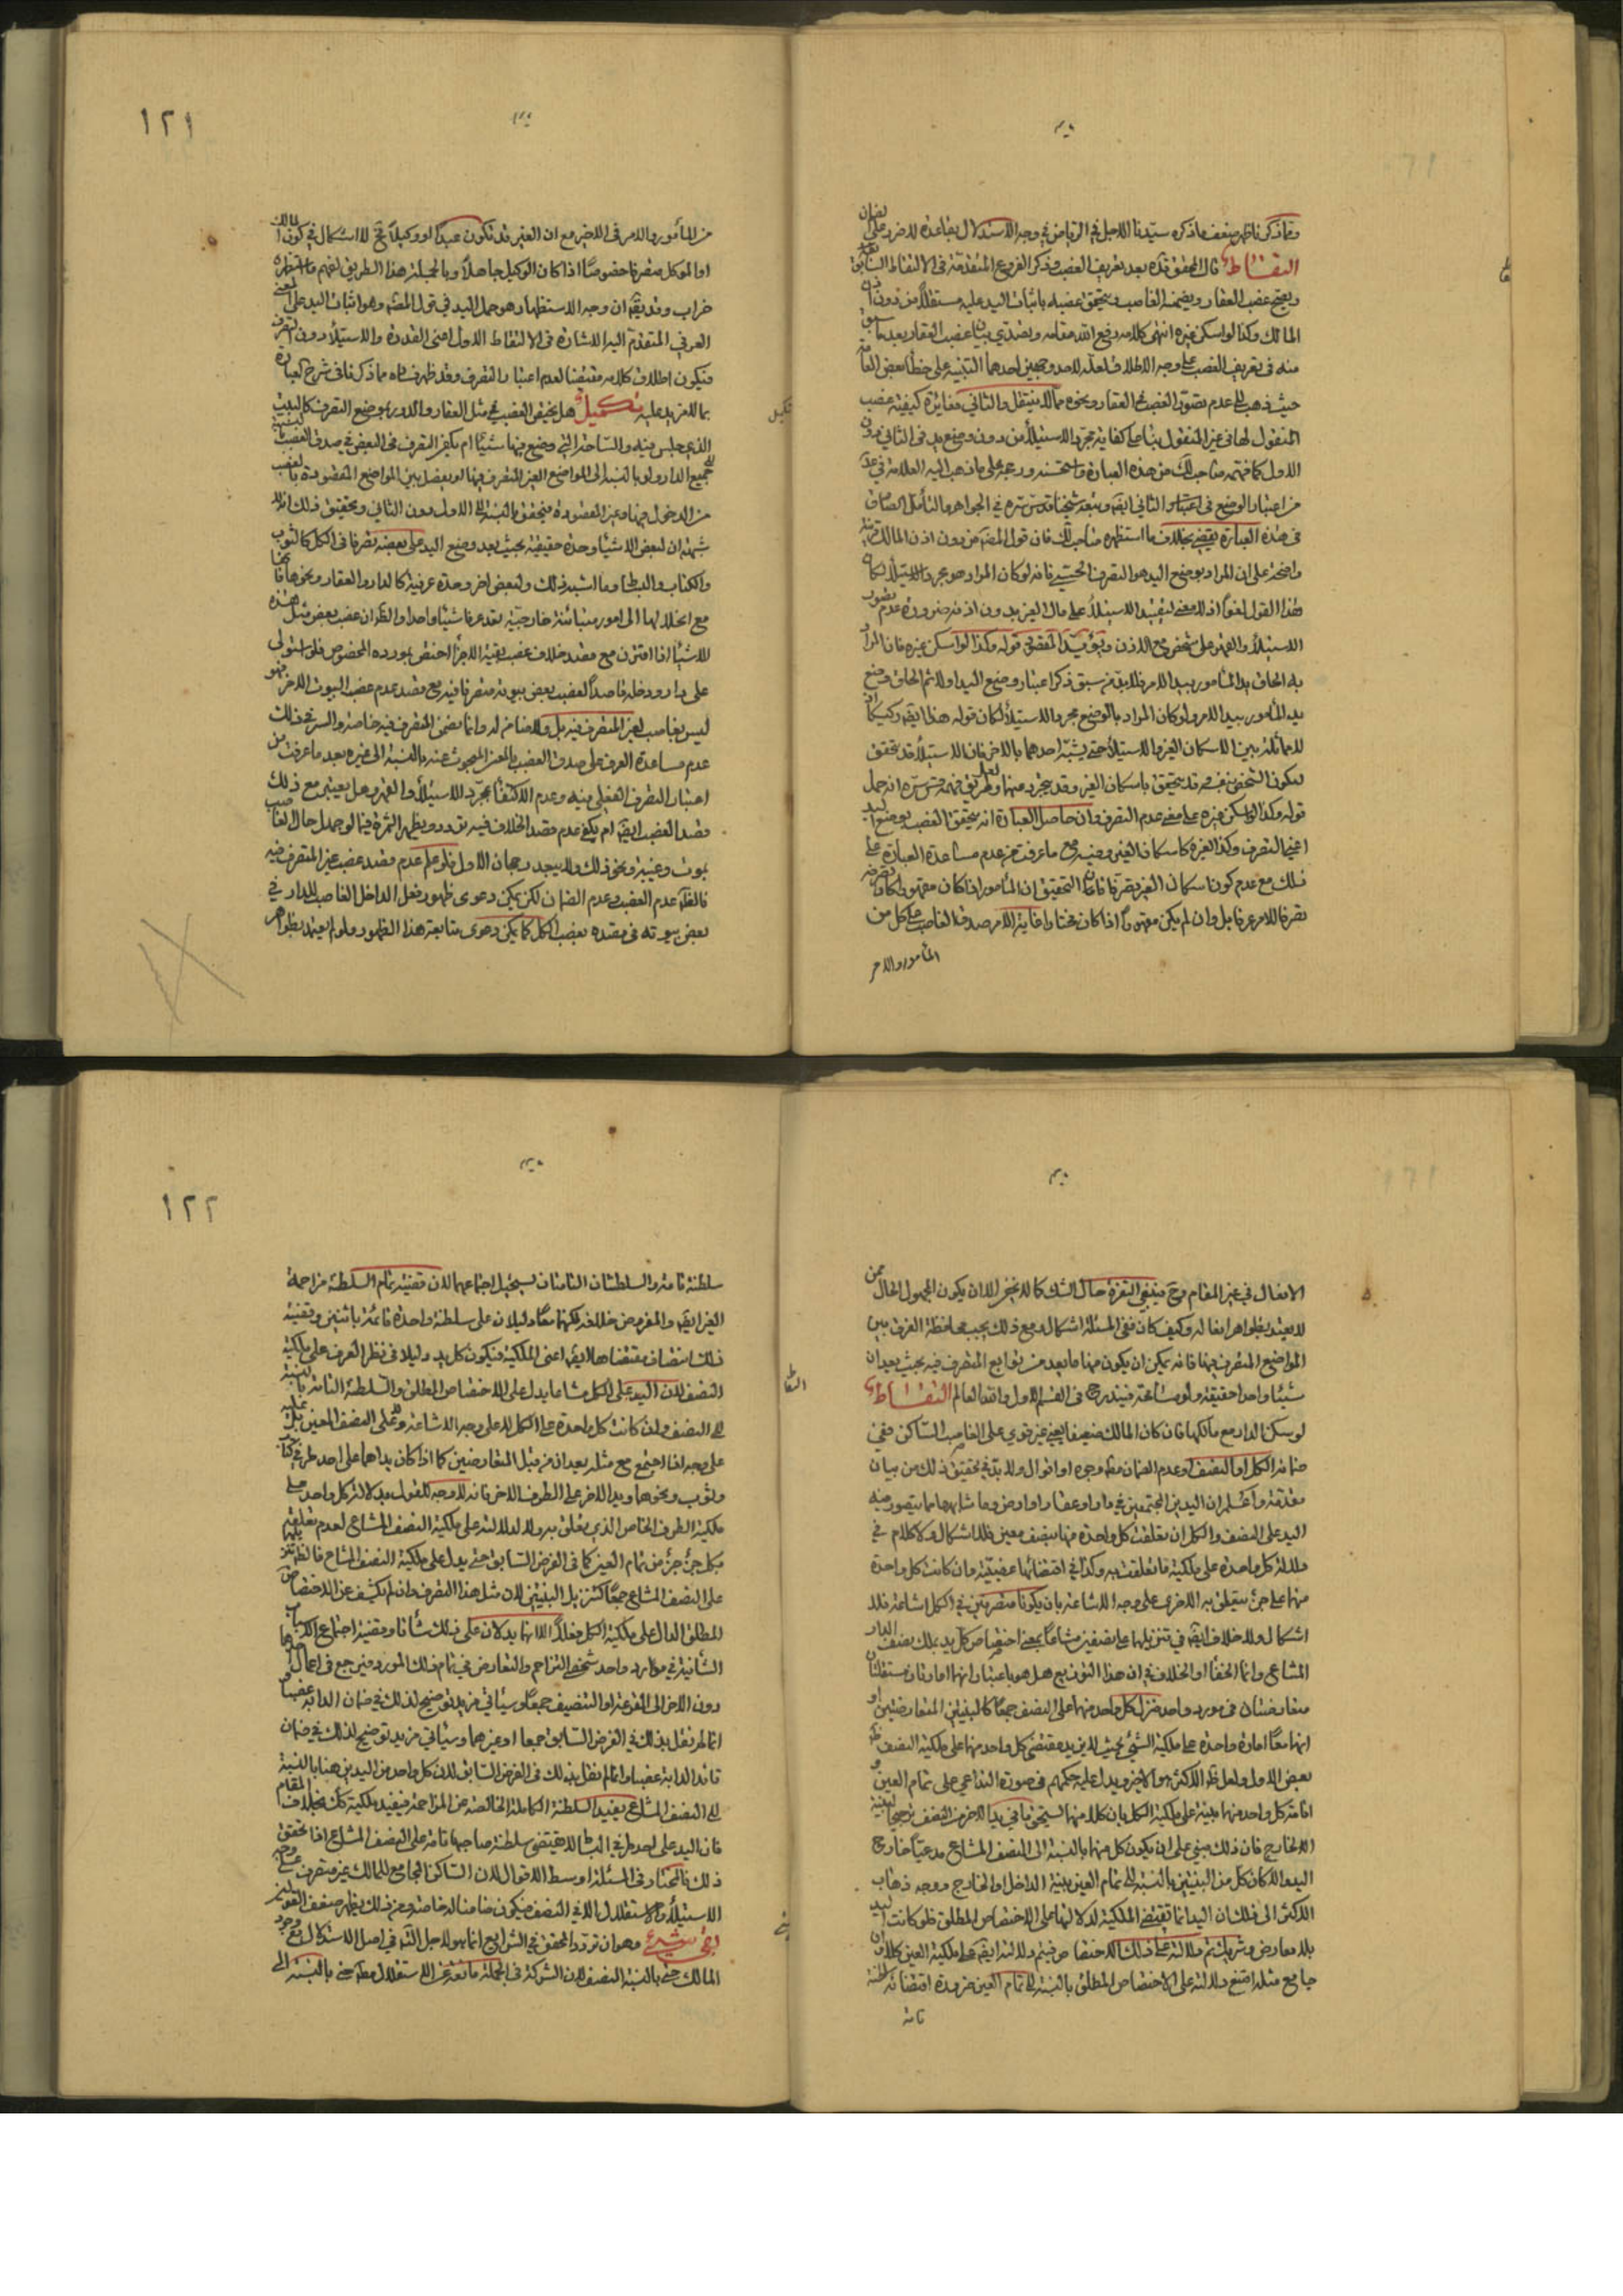 وما ذكرنا ظهر ضعف ما ذكره سيدنا الاجل في الرياض في وجه الاستدلال بقاعدة لا ضرر على لضمان
التقاط قال المحقق قده بعد تعريف الغصب وذكر الفروع المتقدمة في الالتقاط السابق
ويصح غصب العقار ويضمنه الغاصب ويتحقق غصبه باثبات اليد عليه مستقلا من دون اذن
المالك وكذا لو اسكن غيره انتهى كلامه رفع الله مقامه وتصدي بيان غصب العقار بعد ما سبق
منه في تعريف الغصب على وجه الاطلاق لعله لاحد وجهين احدهما التنبيه على خطأ بعض العامة
حيث ذهب الى عدم تصور الغصب في العقار ونحوه مما لا ينتقل والثاني مغايرة كيفية غصب
المنقول لها في غير المنقول بناء على كفاية مجرد الاستيلاء من دون وضع يد في الثاني دون
الاول كما فهمه صاحب لك من هذه العبارة واستحسنه ورجحه على ما ذهب اليه العلامة في عد
من اعتبار الوضع في الثاني ايضا وتبعه شيخنا قدس سره في الجواهر والتأمل الصادق
في هذه العبارة يقضي بخلاف ما استظهره صاحب لك فان قول المصنف من دون اذن المالك قرينة
واضحة على ان المراد بوضع اليد هو التصرف الحسي فانه لو كان المراد هو مجرد الاستيلاء لكان
هذا القول لغوا اذ لا معنى لتقييد الاستيلاء على مال الغير بدون اذنه ضرورة عدم تصور
الاستيلاء والقهر على شخص مع الاذن ويؤيد المقصود قوله وكذا لو اسكن غيره فان المراد
به الحاق يد المأمور بيد الامر فلا بد من سبق ذكر اعتبار وضع اليد اولا ثم الحاق وضع
يد المأمور بيد الامر ولو كان المراد بالوضع مجرد الاستيلاء لكان قوله هذا ايضا ركيكا اذ
لا مماثلة بين الاسكان الغير والاستيلاء حتى يشبه احدهما بالاخر فان الاستيلاء قد يتحقق
لسكون الشخص بنفسه قد يتحقق باسكان الغير وقد يتجرد عنهما ولعل طريق فهمه قدس سره انه حمل
قوله وكذا لو اسكن غيره على معنى عدم التصرف وان حاصل العبارة انه يتحقق الغصب بوضع اليد
اعني التصرف وكذا لغيره كاسكان الغير وفيه مع ما عرفت من عدم مساعدة العبارة على
ذلك مع عدم كون اسكان الغير تصرفا فان التحقيق ان المأمور اذا كان مقهورا كان تصرفه
تصرفا للامر عرفا بل وان لم يكن مقهورا اذا كان مختارا غاية الامر صدق الغاصب على كل من
المأمور والامر
١٢١
من المأمور والامر في الاخير مع ان الغير قد يكون عبدا او وكيلا فح لا اشكال في كون المالك
او الموكل متصرفا خصوصا اذا كان الوكيل جاهلا وبالجملة هذا الطريق لفهم ما استظهره
خراب وقد يقال ان وجه الاستظهار هو حمل اليد في قول المصنف وهو اثبات اليد على المعنى
العرفي المتقدم اليه الاشارة في الالتقاط الاول اعني القدرة والاستيلاء دون التصرف
فيكون اطلاق كلامه مقتضيا لعدم اعتبار التصرف وقد ظهر فساده مما ذكرنا في شرح العبارة
بما لا مزيد عليه تكميل هل يختص الغصب في مثل العقار والدور بموضع التصرف كالبيت
الذي جلس فيه والساحة التي وضع فيها شيئا ام يكفي التصرف في البعض في صدق الغصب بالنسبة
الى جميع الدار ولو بالنسبة الى المواضع الغير المتصرف فيها او يفصل بين المواضع المقصودة بالغصب
من الدخول فيها وغير المقصودة فيتحقق بالنسبة الى الاول دون الثاني وتحقيق ذلك انه لا
شبهة ان لبعض الاشياء وحدة حقيقية بحيث يعد وضع اليد على بعضه تصرفا في الكل كالثوب
والكتاب والبساط وما اشبه ذلك ولبعض اخر وحدة عرفية كالدار والعقار ونحوها فانها
مع انحلالها الى امور متباينة خارجية تعد عرفا شيئا واحدا والظ ان غصب بعض مثل هذه
الاشياء اذا اقترن مع قصد خلاف غصب بقية الاجزاء اختص بمورده المخصوص فلو استولى
على دار ودخله قاصدا لغصب بعض بيوته متصرفا فيه مع قصد عدم غصب البيوت الاخر فهو
ليس بغاصب لغير المتصرف فيه بل ولا ضامن له وانما يضمن المتصرف فيه خاصة والسر في ذلك
عدم مساعدة العرف على صدق الغصب بالمعنى المبحوث عنه بالنسبة الى غيره بعد ما عرفت من
اعتبار التصرف الفعلي فيه وعدم الاكتفاء بمجرد الاستيلاء والقهر وهل يعتبر مع ذلك
قصد الغصب ايضا ام يكفي عدم قصد الخلاف فيه تردد ويظهر الثمرة فيما لو جهل حال الغاصب
بموت وغيبة ونحو ذلك ولا يبعد رجحان الاول فلو علم عدم قصد غصب غير المتصرف فيه
فالظ عدم الغصب وعدم الضمان لكن يمكن دعوى ظهور فعل الداخل الغاصب للدار في
بعض بيوته في قصده بغصب الكل كما يمكن دعوى متابعة هذا الظهور ولو لم يعتد بظواهر
الافعال في غير المقام وح ينتفي الثمرة حال الشك كما لا يخفى الا ان يكون المجهول الحال ممن
لا يعتد بظواهر افعاله وكيف كان ففي المسئلة اشكال ومع ذلك يجب محافظة الفرق بين
المواضع المتصرف فيها فانه يمكن ان يكون منها ما يعد من توابع المتصرف فيه بحيث يعدان
شيئا واحدا حقيقة ولو مسامحة فيندرج في القسم الاول والله العالم التقاط
لو سكن الدار مع مالكها فان كان المالك ضعيفا يعني غير قوي على الغاصب الساكن ففي
ضمانه الكل او النصف او عدم الضمان مطلقا وجوه او اقوال ولا بد في تحقيق ذلك من بيان
مقدمة واعلم ان اليدين المجتمعين في دار او عقار او ارض وما شابهها مما يتصور فيه
اليد على النصف والكل ان تعلقت كل واحدة منها بنصف معين فلا اشكال ولا كلام في
دلالة كل واحدة على ملكية ما تعلقت به وكذا في اقتضائها غصبيته وان كانت كل واحدة
منهما على جزء يتعلق به الاخرى على وجه الاشاعة بان يكونا متصرفين في الكل اشاعة فلا
اشكال ولا خلاف ايضا في تنزيلهما على نصفين مشاعا بمعنى اختصاص كل يد بملك نصف الدار
المشاع وانما الخفاء او الخلاف في ان هذا التوزيع هل هو باعتبار انهما امارتان مستقلتان
متعارضتان في مورد واحد فنزل كل واحد منهما على النصف جمعا كالبينتين المتعارضتين او
انهما معا امارة واحدة على ملكية الشيء بحيث لا يزيد مقتضى كل واحد منهما على ملكية النصف ظ
بعض الاول ولعل ظ الاكثر هو الاخير ويدل عليه حكمهم في صورة التداعي على تمام العين و
اقامة كل واحد منهما بينة على ملكية الكل بان كلا منهما يستحق ما في يد الاخر من النصف ترجيحا لبينة
الخارج فان ذلك مبني على ان يكون كل منهما بالنسبة الى النصف المشاع مدعيا خارج
اليد والا كان كل من البينتين بالنسبة الى تمام العين بينة الداخل او الخارج ووجه ذهاب
الاكثر الى ذلك ان اليد انما تقتضي الملكية لدلالتها على الاختصاص المطلق فلو كانت اليد
بلا معارض وشريك تم دلالته على ذلك الاختصاص فيتم دلالته ايضا على ملكية العين كلا وان
جامع مثله امتنع دلالته على الاختصاص المطلق بالنسبة الى تمام العين ضرورة اقتضائه سلطنة
تامة
١٢٢
سلطنة تامة والسلطنتان التامتان يستحيل اجتماعهما لان قضية تمام السلطنة مزاحمة
الغير ايضا والمفروض خلافه فكلتهما معا دليلان على سلطنة واحدة قائمة باثنين وقضية
ذلك انتصاف مقتضاها ايضا اعني الملكية فيكون كل يد دليلا في نظر العرف على ملكية
النصف لان اليد على الكل مشاعا يدل على الاختصاص المطلق والسلطنة التامة بالنسبة
الى النصف وان كانت كل واحدة على الكل لا على وجه الاشاعة ولا على النصف المعين بل
على وجه اذا اجتمع مع مثله يعدان من قبل المتعارضين كما اذا كان يداهما على احد طرفي كتاب
وثوب ونحوهما ويد الاخر على الطرف الاخر فانه لا وجه للقول بدلالة كل واحد على
ملكية الطرف الخاص الذي تعلق به ولا لدلالته على ملكية النصف المشاع لعدم تعلقه
بكل جزء جزء من تمام العين كما في الفرض السابق حتى يدل على ملكية النصف المشاع فالظ تنزيلهما
على النصف المشاع جمعا كتنزيل البينتين لان مثل هذا التصرف وان لم يكشف عن الاختصاص
المطلق الدال على ملكية الكل فعلا الا انهما يدلان على ذلك شأنا وقضية اجتماع الاسباب
الشأنية في مورد واحد شخصي التزاحم والتعارض في تمام ذلك المورد فيرجع في اعمال احدهما
دون الاخر الى القرعة او التنصيف جمعا وسيأتي مزيد توضيح لذلك في ضمان الدابة غصبا و
انما لم نقل بذلك في الفرض السابق جمعا او غيرهما وسيأتي مزيد توضيح لذلك في ضمان
قائد الدابة غصبا وانما لم نقل بذلك في الفرض السابق لان كل واحد من اليدين هنا بالنسبة
الى النصف المشاع يفيد السلطنة الكاملة الخالصة عن المزاحمة فيفيد ملكية كل بخلاف المقام
فان اليد على احد طرفي البساط لا يقتضي سلطنة صاحبها تامة على النصف المشاع اذا تحقق
ذلك فالمختار في المسئلة اوسط الاقوال لان الساكن الجامع للمالك غير متصرف على وجه
الاستيلاء والاستقلال الا في النصف فيكون ضامنا له خاصة ومن ذلك يظهر ضعف القولين
وهو ان تردد المحقق في الشرايع انما هو لاجل الله في اصل الاستقلال مع وجود
المالك حتى بالنسبة النصف لان الشركة في الجملة مانعة عن الاستقلال مطلقا حتى بالنسبة الى